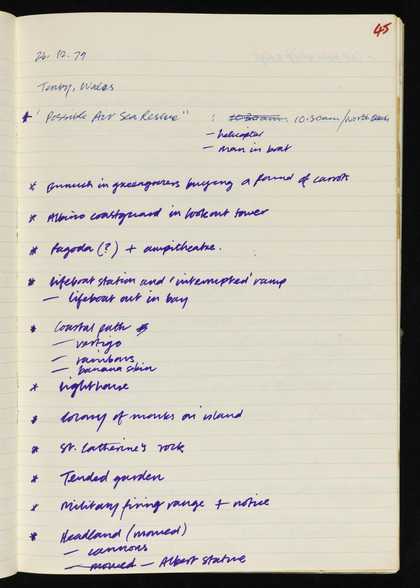 45
26.12.79
Tenby, Wales
* "Possible Air Sea Rescue" : 10.30am 10.30am/North Beach
– helicopter
– man in boat
* Eunuch in greengrocers buying a pound of carrots
* Albino coastguard in lookout tower
* Pagoda (?) + ampitheatre.
* Lifeboat station and 'interrupted' ramp
– lifeboat out in bay
* Coastal path
– vertigo
– rainbows
– banana skin
* Lighthouse
* Colony of monks on island
* St. Catherine's rock
* Tended garden
* Military firing range + notice
* Headland (mowed)
– cannons
– mowed – Albert statue